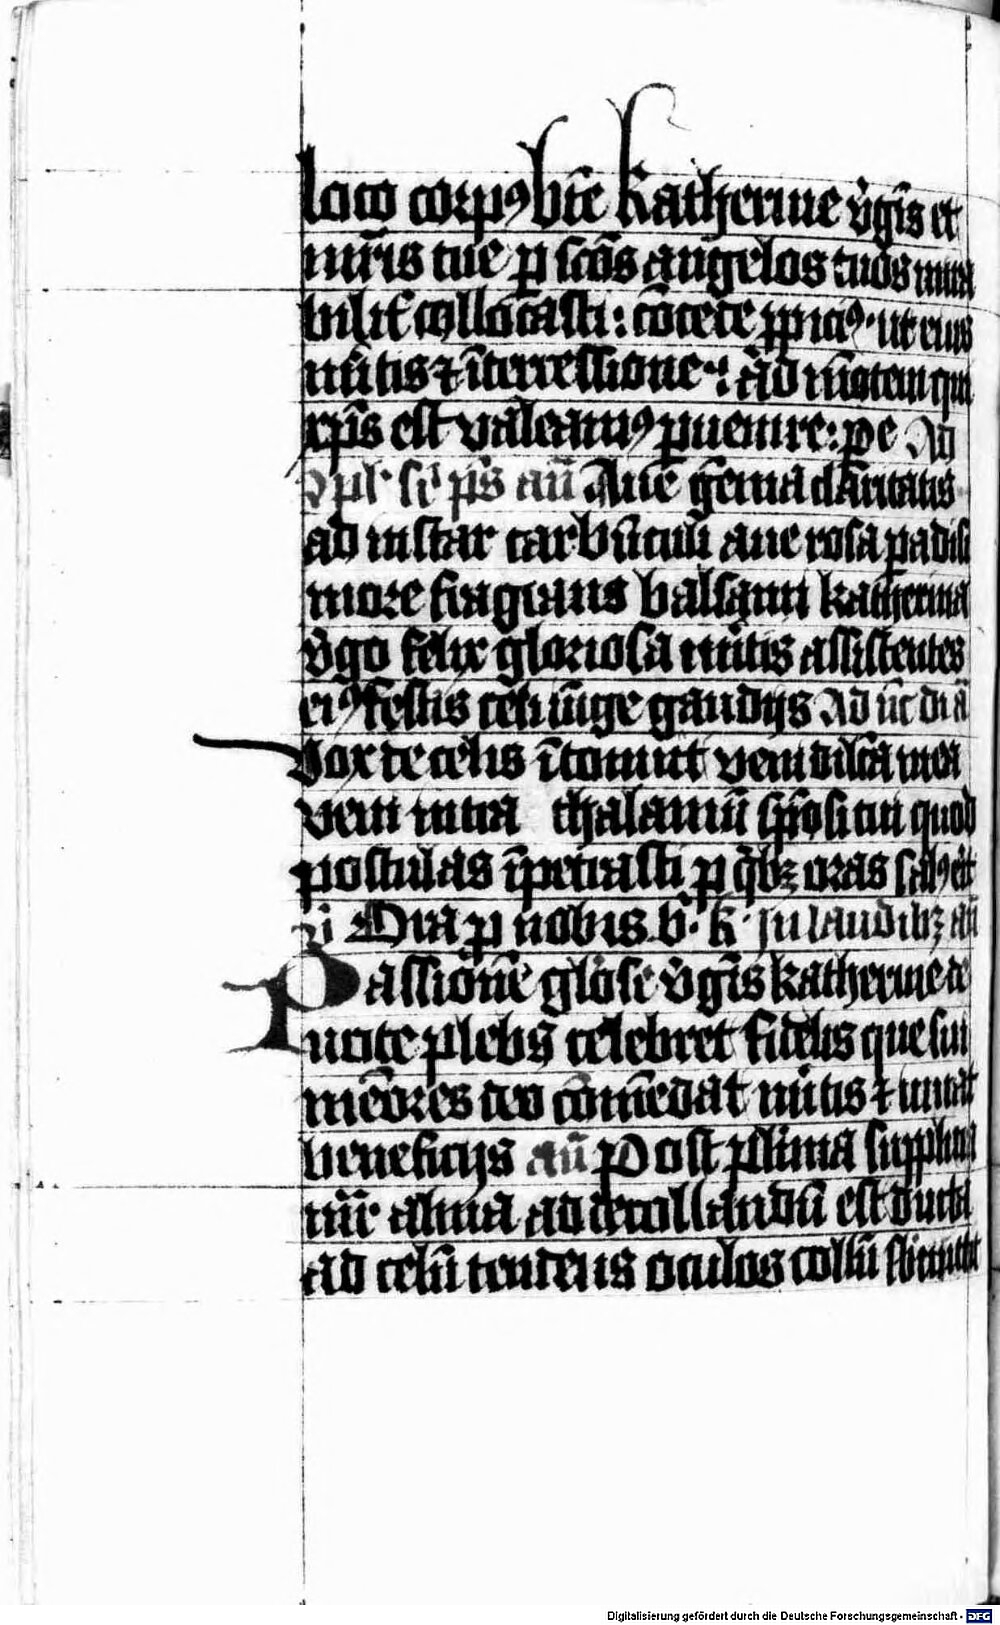 loco corpꝰ btē Katherine v̓gīs et
mr̄is tue ꝑ scōs angelos tuos mira
bilit̓ collocasti: cōcede ꝓpiciꝰ · ut eius
mītis ⁊ īt̓cessione · ad mōtem qui
xp̄s est valeamꝰ ꝑuenire: ꝑ e Ad
pl̓ sr̓ ps̄ an̄ Aue gēma claritatis
ad instar carbūculi aue rosa padisi
more fragrans balsami katherina
v̓go felix gloriosa mītis assistentes
eiꝰ festis celi iūge gaudijs Ad
vox de celis ītonuit veni dilcā mea
veni intra thalamū spōsi tui quod
postulas īpetrasti ꝑ qͥbꝫ oras salꝰ
Ora ꝑ nobis b · k · In laudibꝫ an̄
Passionē glōse v̓gīs katherine de
uote plebs celebret fidelis que sui
mēores deo cōmēdat mītis ⁊ iuuat
beneficijs an̄ Post plima supplicia
mr̄ alma ad decollandū est ducta
ad celū tendens oculos collū
Digitalisierung gefördert durch die Deutsche Forschungsgemeinschaft - DFG